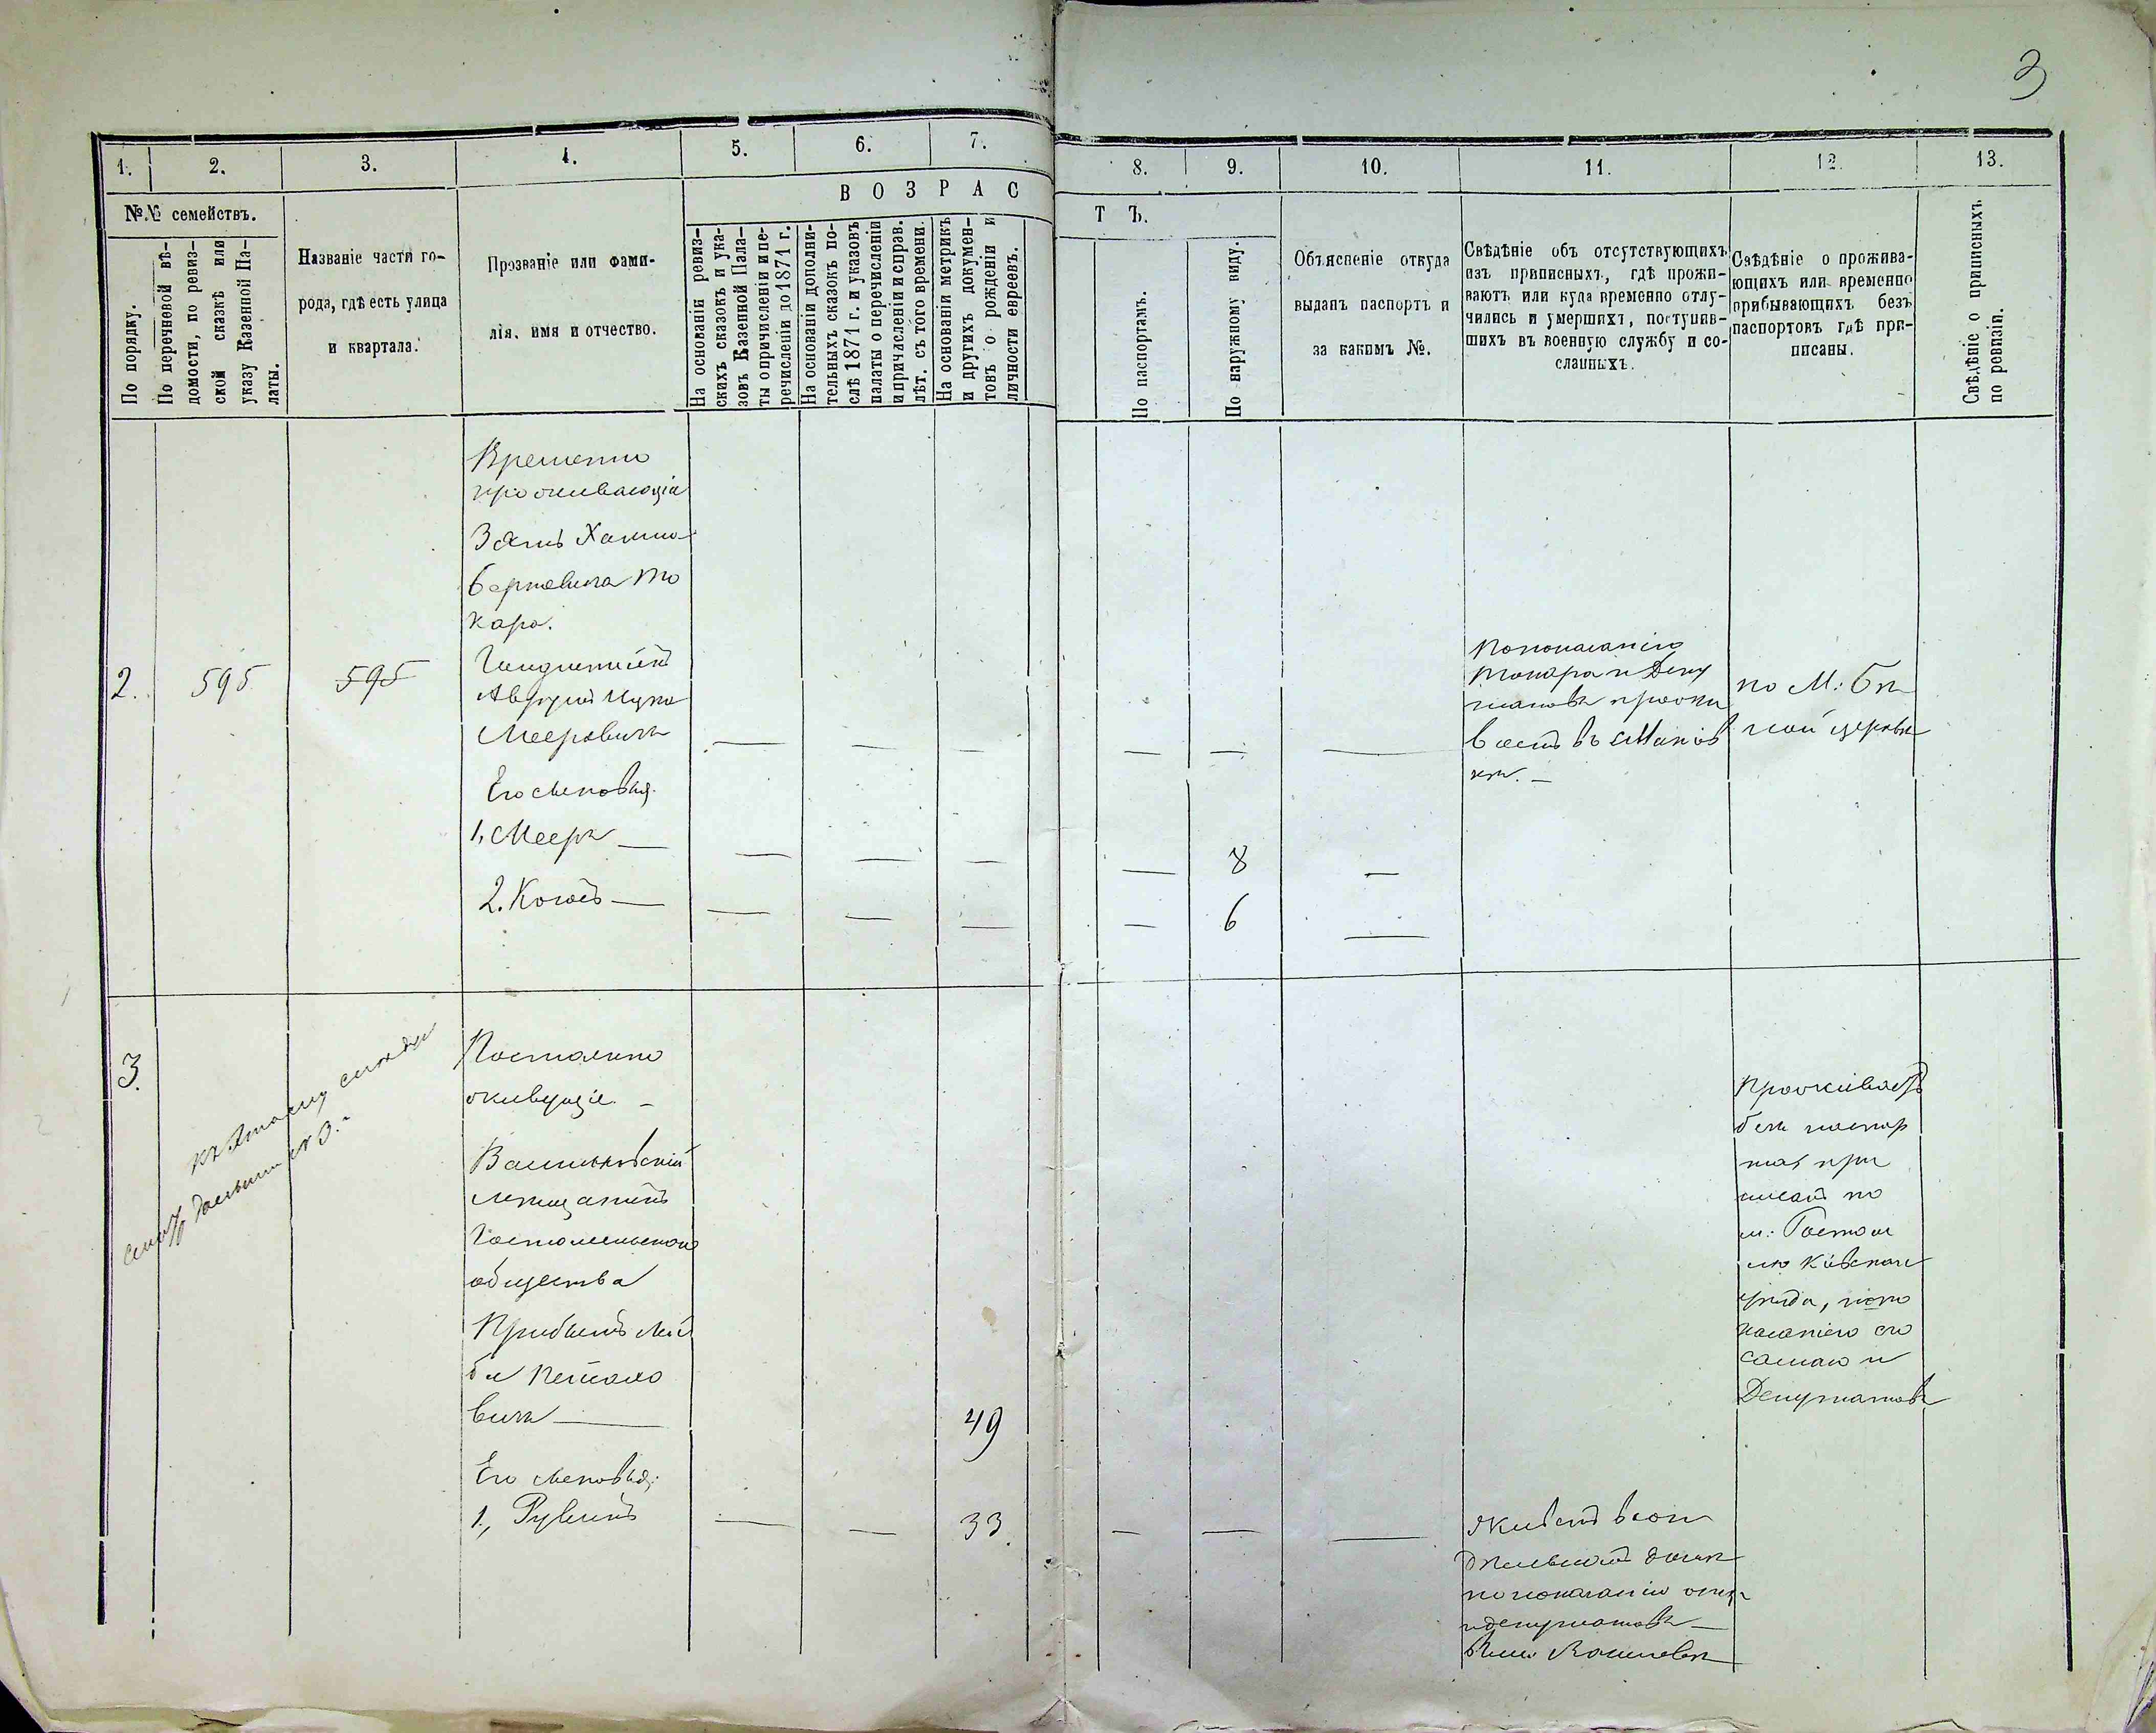 3
1.
2.
3.
4.
5.
6.
7.
8.
9.
10.
11.
12.
13.
№.№ семействъ.
По порядку.
По перечневой вѣ-
домости, по ревиз-
ской сказкѣ или
указу Казенной Па-
латы.
Названіе части го-
рода, гдѣ есть улица
и квартала.
Прозваніе или фами-
лія, имя и отчество.
ВОЗРАС
ТЪ.
На основаніи ревиз-
скихъ сказокъ и ука-
зовъ Казенной Пала-
ты о причисленіи и пе-
речисленіи до 1871 г.
На основаніи дополни-
тельныхъ сказокъ по-
слѣ 1871 г. и указовъ
палаты о перечисленіи
и причисленіи и справ.
лѣт. съ того времени.
На основаніи метрикъ
и другихъ докумен-
товъ о рожденіи и
личности евреевъ.
По паспортамъ.
По наружному виду.
Объясненіе откуда
выданъ паспортъ и
за какимъ №.
Свѣдѣніе объ отсутствующихъ
изъ приписныхъ, гдѣ прожи-
ваютъ или куда временно отлу-
чились и умершихъ, поступив-
шихъ въ военную службу и со-
сланныхъ.
Свѣдѣніе о прожива-
ющихъ или временно
прибывающихъ безъ
паспортовъ гдѣ при-
писаны.
Свѣдѣніе о приписныхъ
по ревизіи.
Временно
проживающіе
Зять
То
кара.
2.
595
595
Мееровичъ
Его сыновья
1, Мееръ —
8
2. —
6
По показанію
Токара и Депу
татовъ прожи
ваетъ въ
по М: Бѣ
лой церкви
3.
Постоянно
живущіе —
Васильковскій
мѣщанинъ
Гостомельскаго
общества
Лей
ба
вичъ —
49
Его сыновья:
1, Рувинъ
33.
Проживаетъ
безъ паспор
та, при
писанъ по
м: Гостом
лю Кіевскаго
уѣзда, по по
казанію его
самаго и
Депутатовъ
Живетъ въ от
дѣльномъ домѣ
по показанію отца
и депутатовъ —